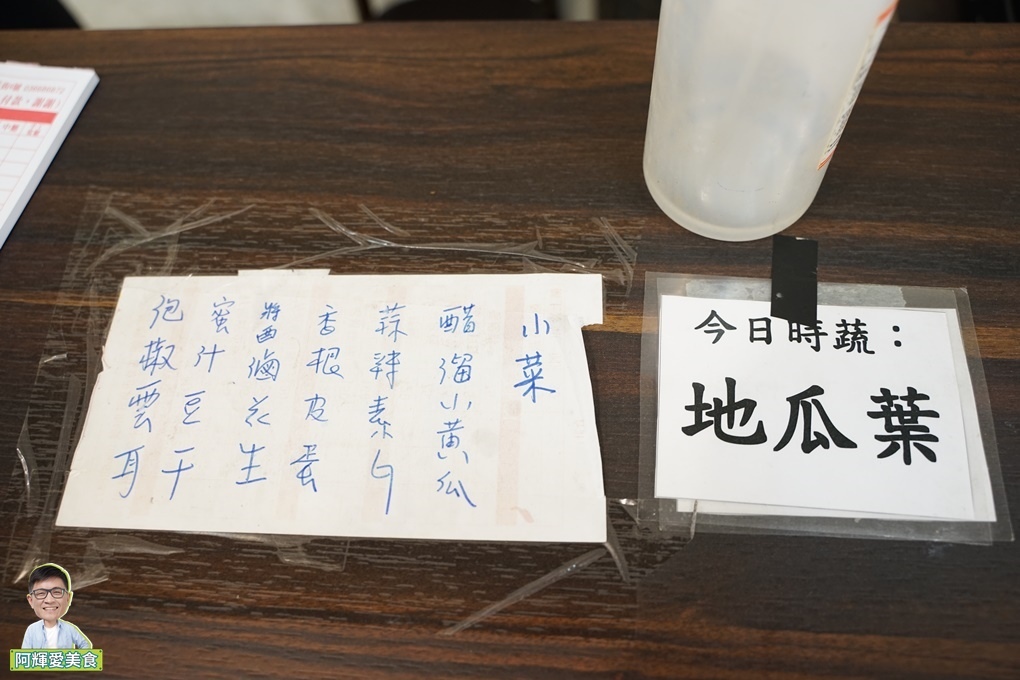 小菜
醋溜小黃瓜
蒜辣素勺
香根皮蛋
醬滷花生
蜜汁豆干
泡椒雲耳
今日時蔬：
地瓜葉
阿輝愛美食